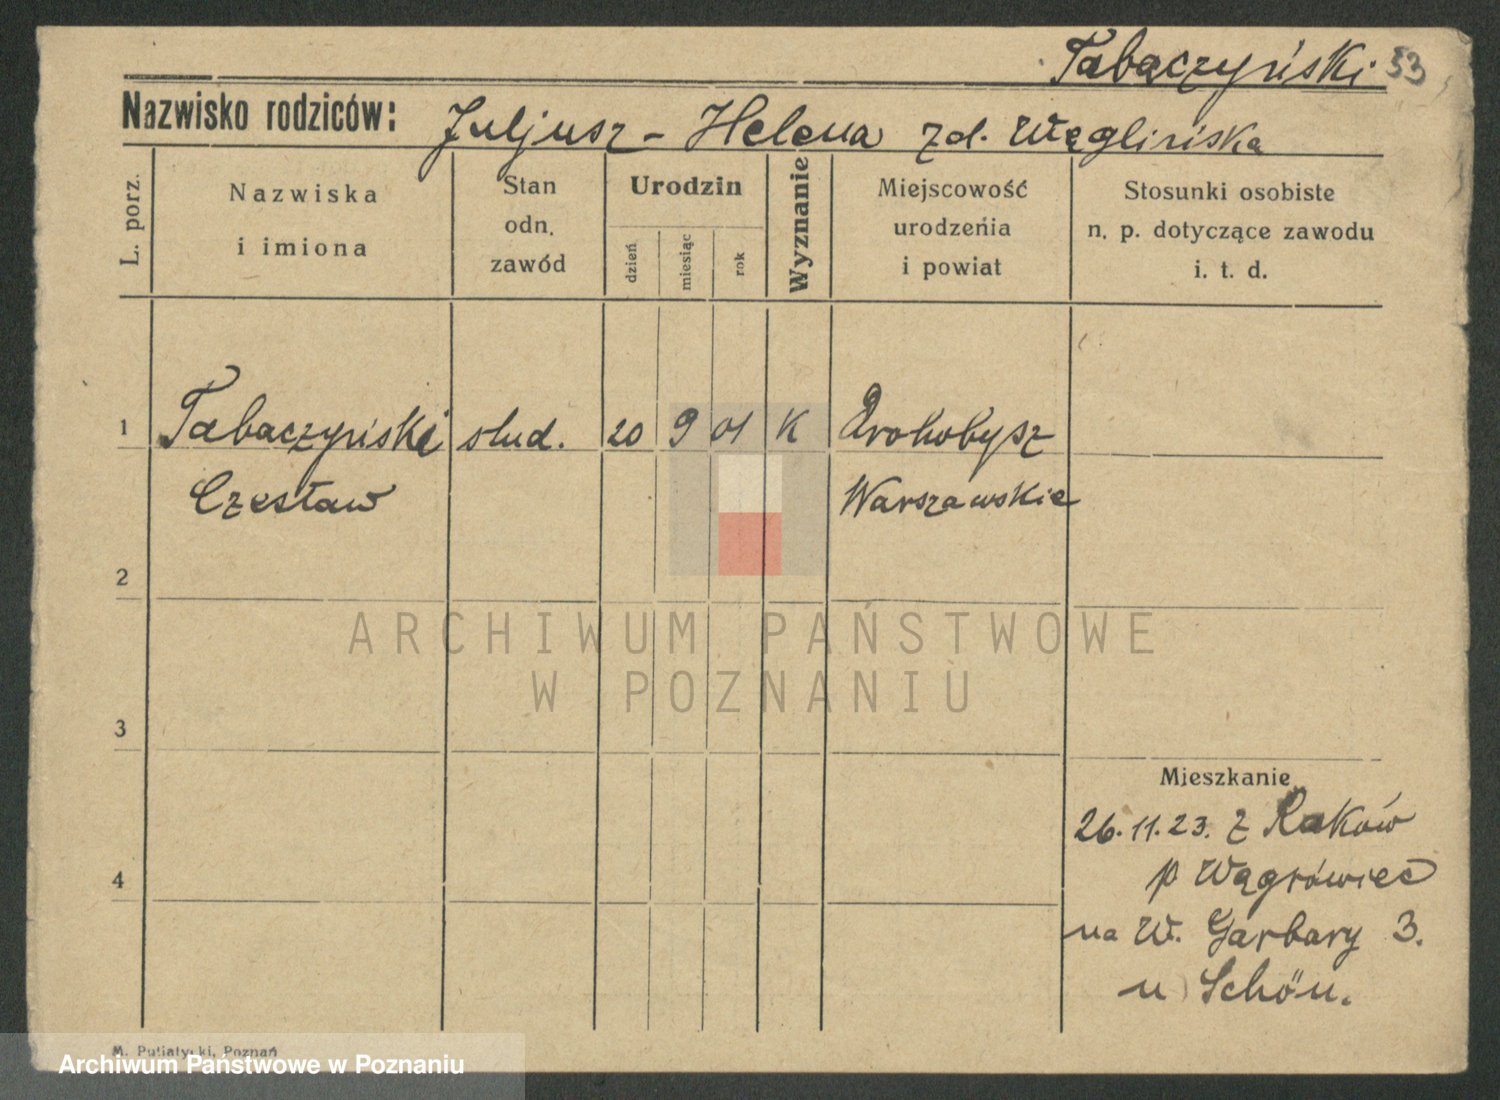 Tabaczyński 53
Nazwisko rodziców: Juljusz - Helena zd. Węglińska
L. porz.
Nazwiska
i imiona
Stan
odn.
zawód
Urodzin
dzień
miesiąc
rok
Wyznanie
Miejscowość
urodzeńia
i powiat
Stosunki osobiste
n. p. dotyczące zawodu
i. t. d.
1 Tabaczyński stud. 20 9 01 K Drohobysz
Czesław Warszawskie
2
3
4
Mieszkanie
26.11.23. z Raków
p Wągrówiec
na W. Garbary 3.
u Schön.
ARCHIWUM PAŃSTWOWE
W POZNANIU
M. Putiatycki, Poznań
Archiwum Państwowe w Poznaniu